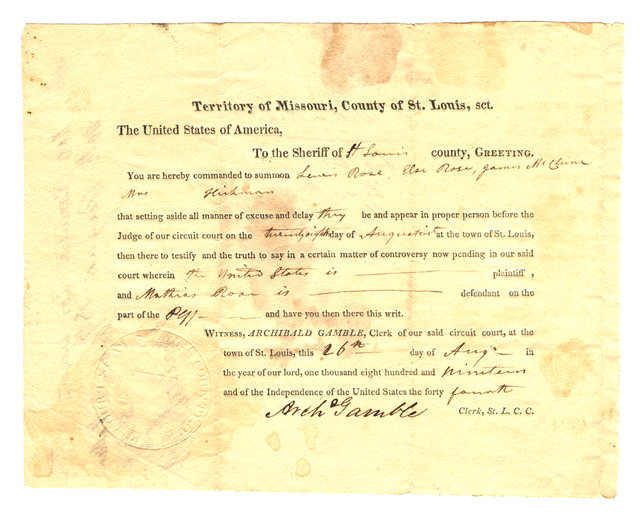 Territory of Missouri, County of St. Louis, sct.
The United States of America,
To the Sheriff of St Louis county, GREETING.
You are hereby commanded to summon Lewis Rose, Else Rose, James McClure
Mrs Hickman
that setting aside all manner of excuse and delay they be and appear in proper person before the
Judge of our circuit court on the twenty eighth day of August inst at the town of St. Louis,
then there to testify and the truth to say in a certain matter of controversy now pending in our said
court wherein the United States is plaintiff ,
and Mathias Rose is defendant on the
part of the Plff and have you then there this writ.
WITNESS, ARCHIBALD GAMBLE, Clerk of our said circuit court, at the
town of St. Louis, this 26th day of Aug in
the year of our lord, one thousand eight hundred and nineteen
and of the Independence of the United States the forty fourth
Archd Gamble Clerk, St. L. C. C.